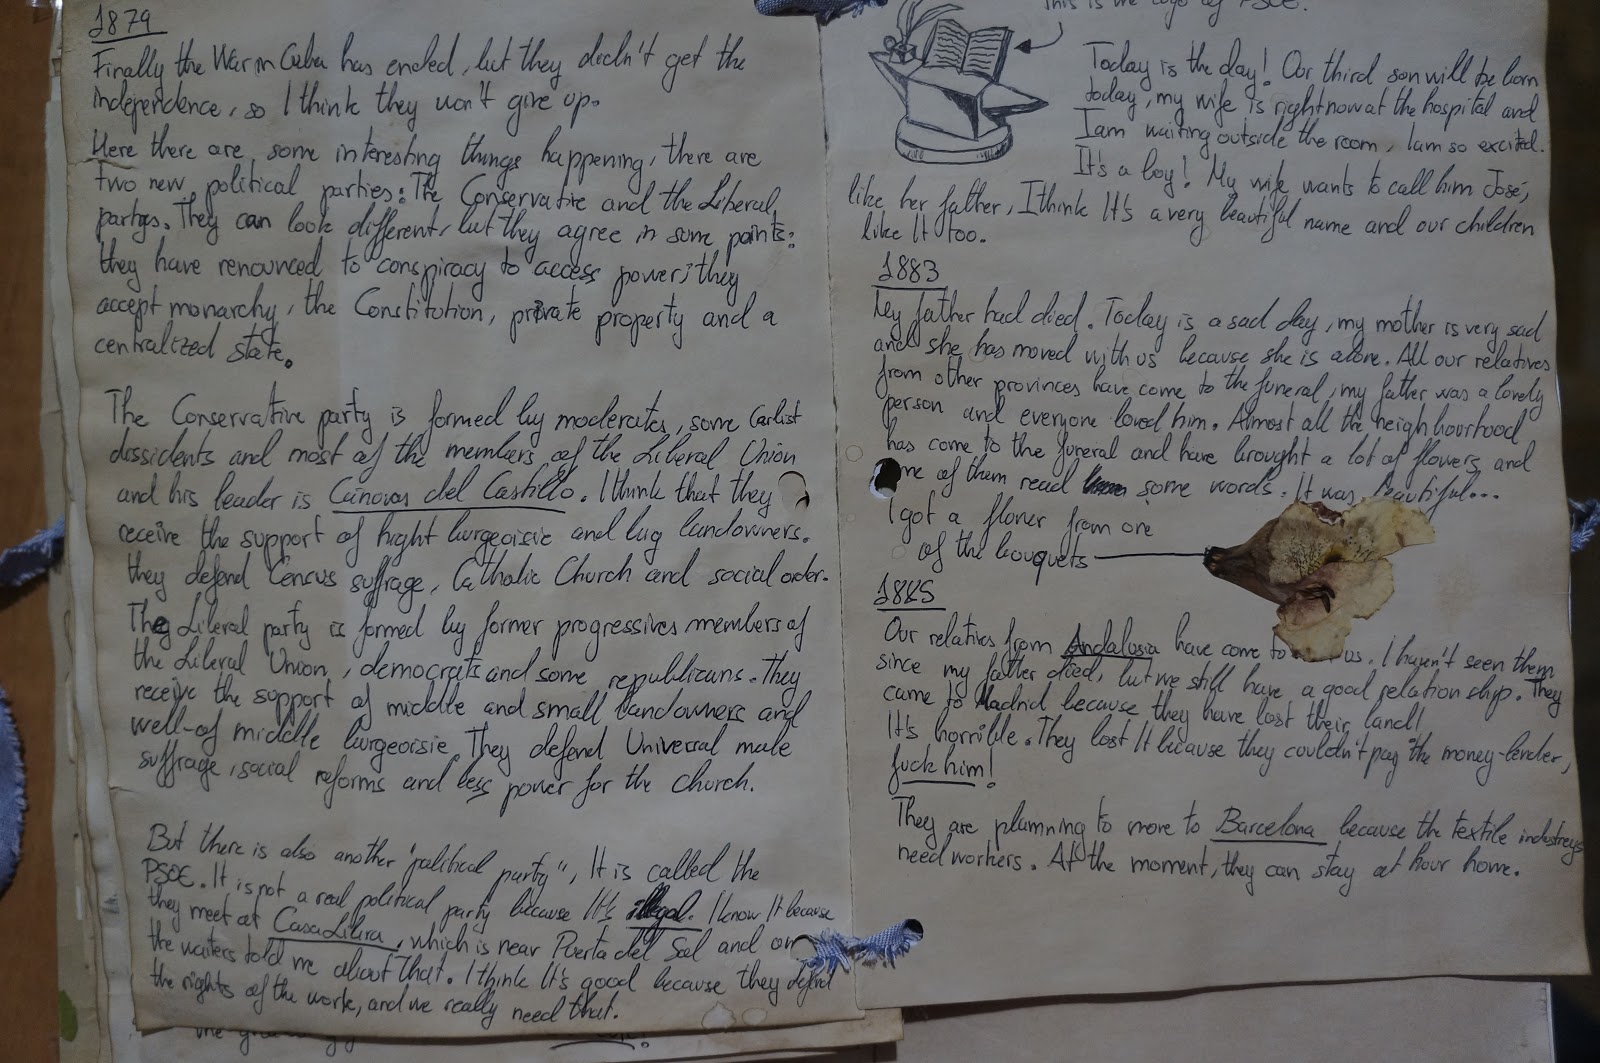 1879
Finally the War in Cuba has ended, but they didn't get the
independence, so I think they won't give up.
Here there are some interesting things happening, there are
two new political parties: The Conservative and the Liberal
partys. They can look different, but they agree in some points:
they have renounced to conspiracy to access power; they
accept monarchy, the Constitution, private property and a
centralized state.
The Conservative party is formed by moderates, some Carlist
dissidents and most of the members of the Liberal Union
and his leader is Cánovas del Castillo. I think that they
receive the support of hight burgeoisie and bug landowners.
they defend Cencus suffrage, Catholic Church and social order.
The Liberal party is formed by former progressives members of
the Liberal Union, democrats and some republicans. They
receive the support of middle and small landowners and
well-of middle burgeorsie. They defend Universal male
suffrage, social reforms and less power for the church.
But there is also another "political party", It is called the
PSOE. It is not a real political party because It's illegal. I know It because
they meet at Casa Labra, which is near Puerta del Sol and
the waiters told me about that. I think It's good because they defend
the rights of the work, and we really need that.
This is the logo of PSOE.
Today is the day! Our third son will be born
today, my wife is right now at the hospital and
I am waiting outside the room, I am so excited.
It's a boy! My wife wants to call him José,
like her father, I think It's a very beautiful name and our children
like It too.
1883
My father had died. Today is a sad day, my mother is very sad
and she has moved with us because she is alone. All our relatives
from other provinces have come to the funeral, my father was a lovely
person and everyone loved him. Almost all the neighbourhood
has come to the funeral and have brought a lot of flowers, and
me of them read some words. It was beautiful...
I got a flower from one
of the bouquets
1885
Our relatives from Andalusia have come to us. I haven't seen them
since my father died, but we still have a good relationship. They
came to Madrid because they have lost their land!
It's horrible. They lost It because they couldn't pay the money-lender,
fuck him!
They are plamning to move to Barcelona because the textile industreys
need workers. At the moment, they can stay at hour home.